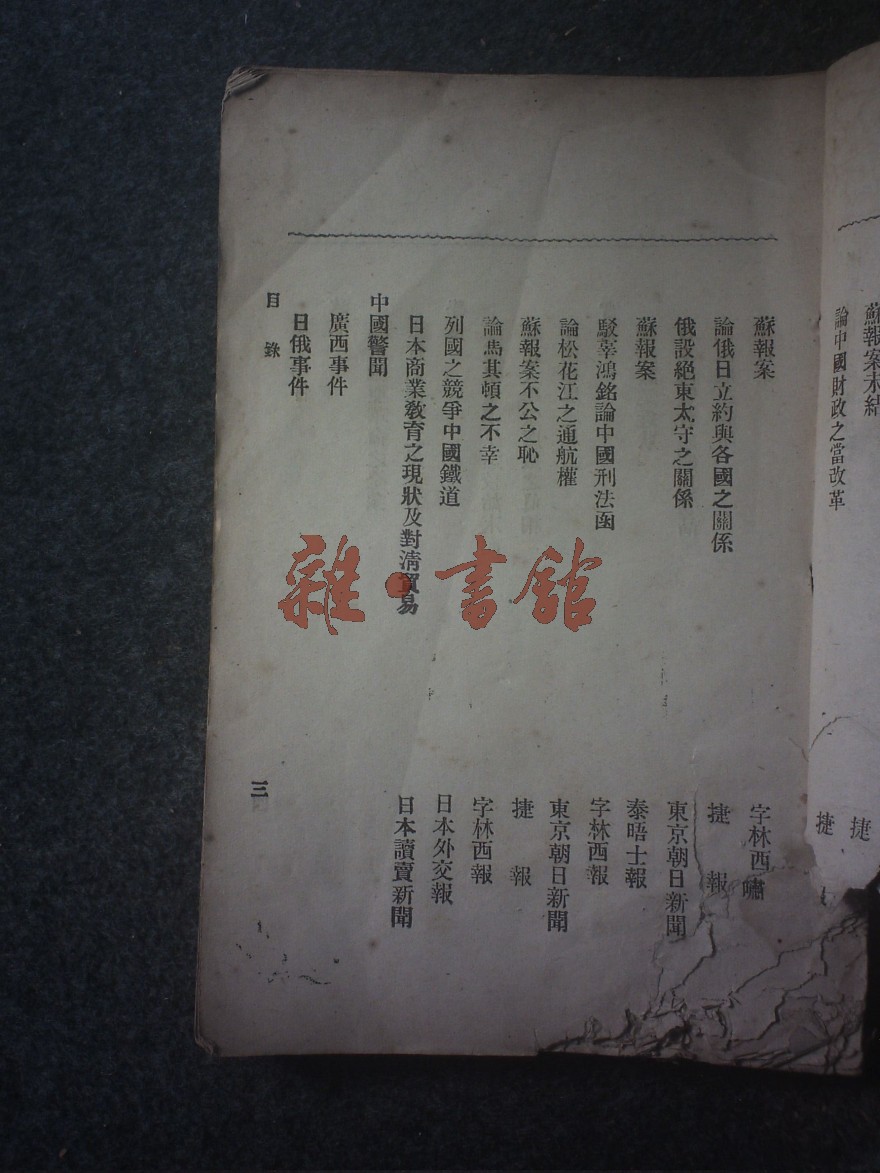 蘇報案未結 捷
論中國財政之當改革 捷
蘇報案 字林西
論俄日立約與各國之關係 捷報
俄設絕東太守之關係 東京朝日新聞
蘇報案 泰晤士報
駁辜鴻銘論中國刑法函 字林西報
論松花江之通航權 東京朝日新聞
蘇報案不公之恥 捷報
論馬其頓之不幸 字林西報
列國之競爭中國鐵道 日本外交報
日本商業敎育之現狀及對清貿易 日本讀賣新聞
中國警聞
廣西事件
日俄事件
目錄
三
雜·書館